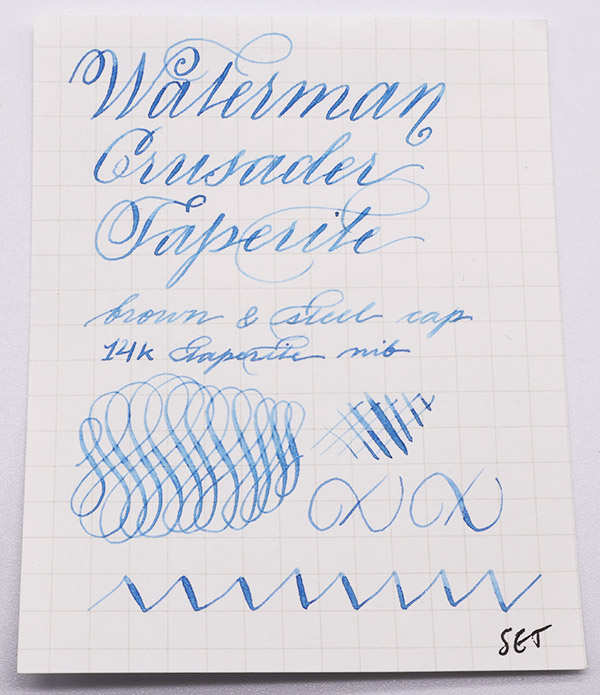 Waterman
Crusader
Taperite
brown & steel cap
14K Taperite nib
SET